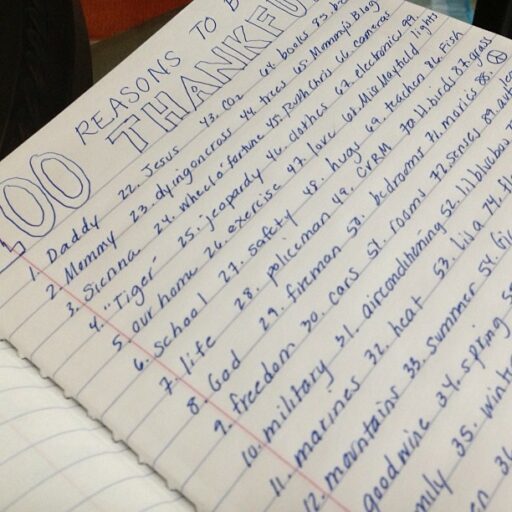 00 REASONS TO B
THANKFU
1. Daddy 22. Jesus 43. CO2 64. books 85.
2. Mommy 23. dying on cross 44. trees 65. Mommy's Blog
3. Sienna 24. wheel o' fortune 45. Ruth Chris 66. cameras
4. "Tiger" 25. jeopardy 46. clothes 67. electronics 
5. our home 26. exercise 47. love 68. Miss Mayfield lights
6. school 27. safety 48. hugs 69. teachers 86. Fish
7. life 28. policeman 49. CVRM 70. H. birds 87. grass
8. God 29. fireman 50. bedrooms 71. movies 88.
9. freedom 30. cars 51. rooms 72. senses 89.
10. military 31. airconditioning 52. lilbluebou
11. marines 32. heat 53. Lisa 74.
12. mountains 33. summer 54.
goodwine 34. spring
mily 35. winte
36.